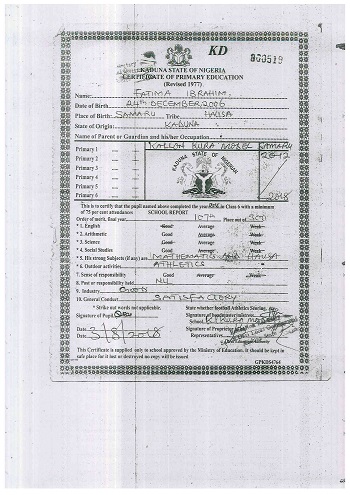 KD
000519
KADUNA STATE OF NIGERIA
CERTIFICATE OF PRIMARY EDUCATION
(Revised 1977)
Name: FATIMA IBRAHIM.
Date of Birth 24th DECEMBER 2006
Place of Birth: SAMARU Tribe HAUSA
State of Origin: KADUNA
Name of Parent or Guardian and his/her Occupation
Primary 1 KALLON KURA MODEL SAMARU
Primary 2 2012
Primary 3
Primary 4
Primary 5
Primary 6 2018
KADUNA STATE OF NIGERIA
This is to certify that the pupil named above completed the year in Class 6 with a minimum
of 75 per cent attendances SCHOOL REPORT
Order of merit, final year, Place out of
* 1. English Good Average Weak
* 2. Arithmetic Good Average Weak
* 3. Science Good Average Weak
* 4. Social Studies Good Average Weak
* 5. His strong Subjects (if any) are MATHEMATICS AND HAUSA
* 6. Outdoor activities ATHLETICS
* 7. Sense of responsibility Good Average Weak
* 8. Post or responsibility held NIL
9. Industry GOOD
10. General Conduct SATISFACTORY
* Strike out words not applicable.
State whether football Athletics Scouting
Signature of Pupil
School
Signature of Proprietor
Representative
Date 3/8/2018
Date
This Certificate is supplied only to school approved by the Ministry of Education. It should be kept in
safe place for it lost or destroyed no copy will be issued.
GPKD84764